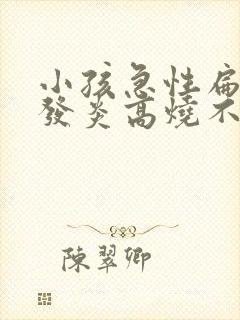 小孩急性扁
發炎高燒不
陳翠卿